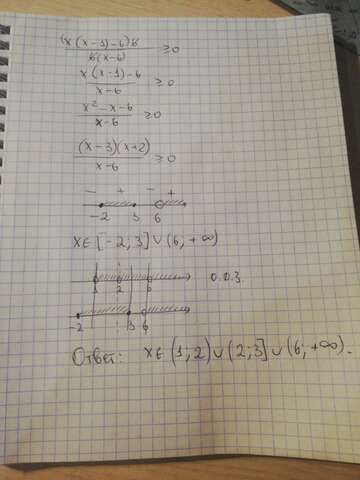 (x(x-1)-6)6/6(x-6) ≥0
x(x-1)-6/x-6 ≥0
x²-x-6/x-6 ≥0
(x-3)(x+2)/x-6 ≥0
- + - +
-2 3 6
x∈[-2;3]∪(6;+∞)
1 2 6 О.Д.З.
-2 3 6
Ответ: x∈(1;2)∪(2;3]∪(6;+∞).